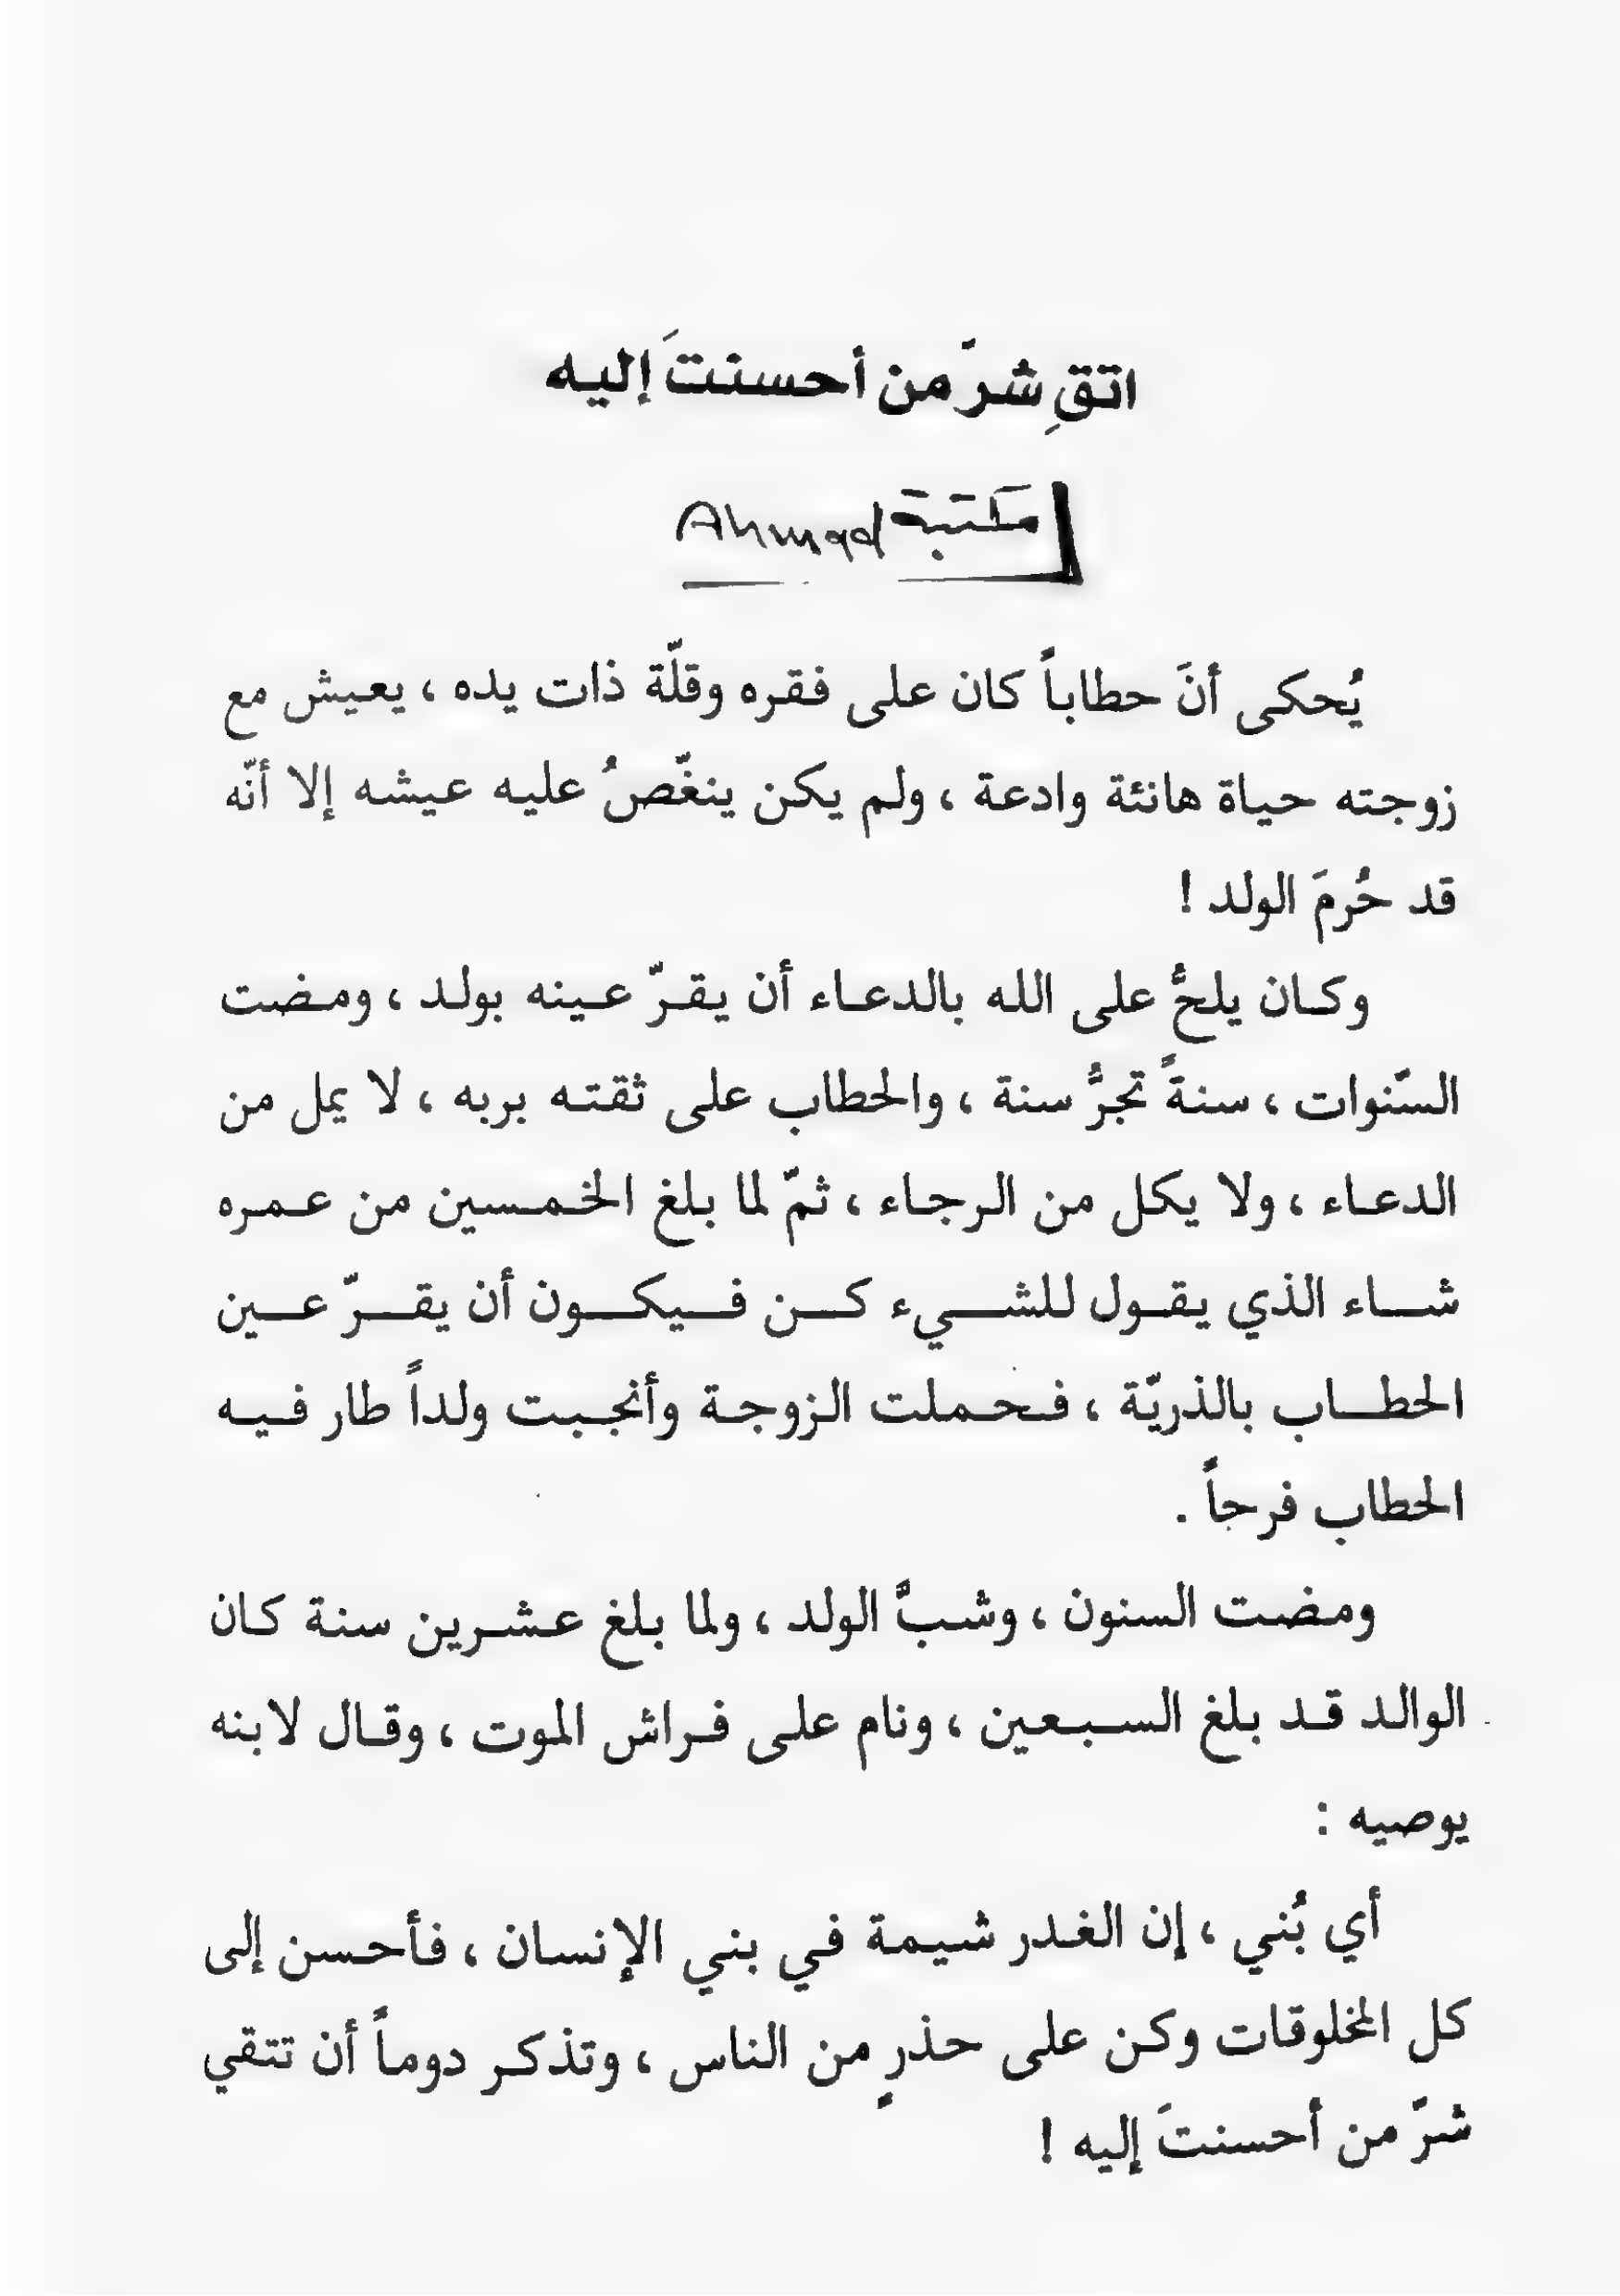 اتقِ شرّ من أحسنتَ إليه
مكتبة Ahmad
يُحكى أنَ حطاباً كان على فقره وقلّة ذات يده ، يعيش مع
زوجته حياة هانئة وادعة ، ولم يكن ينغّصُ عليه عيشه إلا أنّه
قد حُرمَ الولد !
وكان يلحُّ على الله بالدعاء أن يقرّ عينه بولد ، ومضت
السّنوات ، سنةً تجرُّ سنة ، والحطاب على ثقته بربه ، لا يمل من
الدعاء ، ولا يكل من الرجاء ، ثمّ لما بلغ الخمسين من عمره
شاء الذي يقول للشيء كن فيكون أن يقرّ عين
الحطاب بالذريّة ، فحملت الزوجة وأنجبت ولداً طار فيه
الحطاب فرحاً .
ومضت السنون ، وشبَّ الولد ، ولما بلغ عشرين سنة كان
الوالد قد بلغ السبعين ، ونام على فراش الموت ، وقال لابنه
يوصيه :
أي بُني ، إن الغدر شيمة في بني الإنسان ، فأحسن إلى
كل المخلوقات وكن على حذرٍ من الناس ، وتذكر دوماً أن تتقي
شرّ من أحسنتَ إليه !